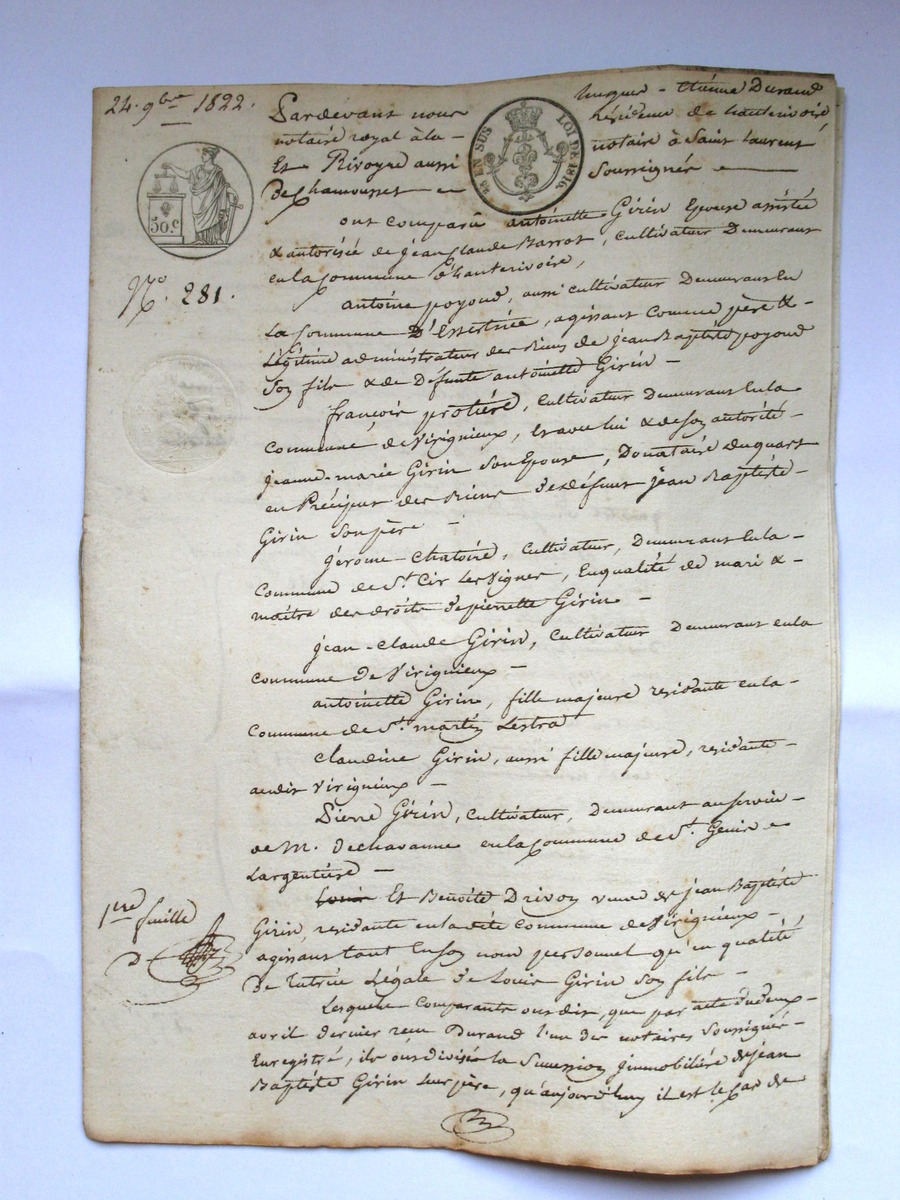 24. 9bre 1822.
Pardevant nous hugues-Etiénne Durand
notaire royal à la Résidence de hauterivoire
Et Rivoyre aussi notaire à Saint Laurent
De Chamousset Soussignés
25 EN SUS LOI DE 1816.
50 c
No. 281.
ont comparu antoinette Girin Epouse assistée
& autorisée de jean Claude Barrot, Cultivateur Demeurant
en la Commune d'hauterivoire,
antoine poyoud, aussi cultivateur Demeurant En
La Commune D'Essertinée, agissant Comme père &
Légitime administrateur des Biens de jean Baptiste poyoud
Son fils & de Défunte antoinette Girin
françois protiére, Cultivateur Demeurant En la
Commune de Virignieux, Et avec lui & de son autorité
jeanne-marie Girin Son Epouse, Donataire du quart
en Préciput des Biens de défunt jean Baptiste
Girin Son père
jérome Chatoire, Cultivateur, Demeurant En la
Commune de St. Cir Les Vignes, En qualité de mari &
maitre des droits de pierrette Girin
jean-Claude Girin, Cultivateur Demeurant en la
Commune De Virignieux
antoinette Girin, fille majeure residante en la
Commune de St. martin Lestra
Claudine Girin, aussi fille majeure, residante
audit Virignieux
Pierre Girin, Cultivateur, Demeurant au Service
de M. Dechavanne en la Commune de St. Genis
Largentière
Louis Et Benoite Drivon veuve de jean Baptiste
Girin, residante en la dite Commune de Virignieux
agissant tant En son nom personnel qu'en qualité
De Tutrice Légale de Louis Girin Son fils
Lesquels Comparants ont dit, que par acte du deux
avril dernier reçu Durand l'un des notaires Soussignés
Enregistré, ils ont divisé la Succession immobiliére de jean
Baptiste Girin Leur père, qu'aujourd'huy il est le Cas de
1ere feuille